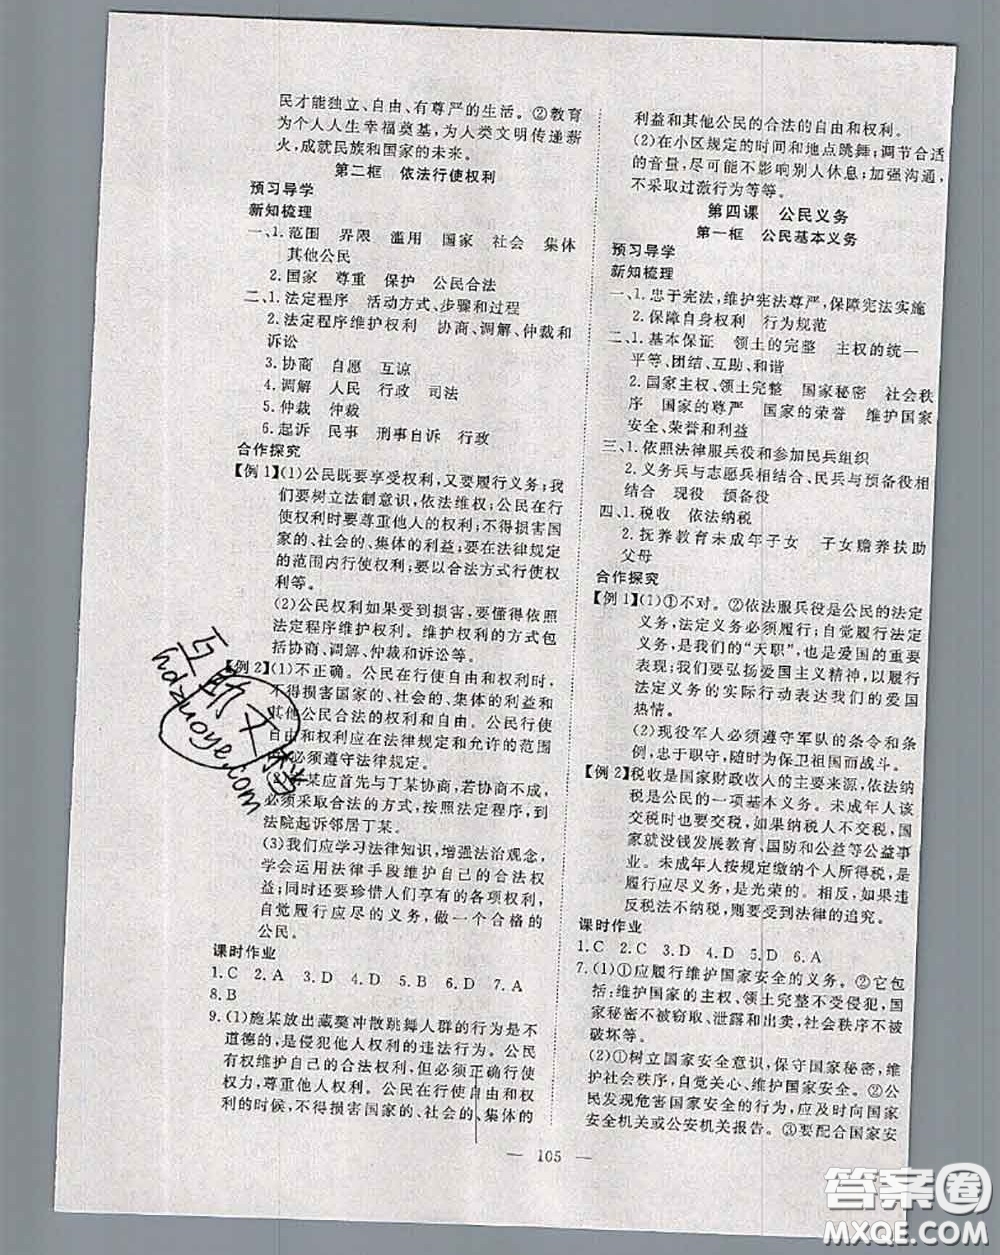 民才能独立、自由、有尊严的生活。②教育
为个人人生幸福奠基，为人类文明传递薪
火，成就民族和国家的未来。
第二框　依法行使权利
预习导学
新知梳理
一、1.范围　界限　滥用　国家　社会　集体
其他公民
2.国家　尊重　保护　公民合法
二、1.法定程序　活动方式、步骤和过程
2.法定程序维护权利　协商、调解、仲裁和
诉讼
3.协商　自愿　互谅
4.调解　人民　行政　司法
5.仲裁　仲裁
6.起诉　民事　刑事自诉　行政
合作探究
【例1】(1)公民既要享受权利，又要履行义务；我
们要树立法制意识，依法维权；公民在行
使权利时要尊重他人的权利；不得损害国
家的、社会的、集体的利益；要在法律规定
的范围内行使权利；要以合法方式行使权
利等。
(2)公民权利如果受到损害，要懂得依照
法定程序维护权利。维护权利的方式包
括协商、调解、仲裁和诉讼等。
【例2】(1)不正确。公民在行使自由和权利时，
不得损害国家的、社会的、集体的利益和
其他公民合法的权利和自由。公民行使
自由和权利应在法律规定和允许的范围
必须遵守法律规定。
某应首先与丁某协商，若协商不成，
必须采取合法的方式，按照法定程序，到
法院起诉邻居丁某。
(3)我们应学习法律知识，增强法治观念，
学会运用法律手段维护自己的合法权
益；同时还要珍惜人们享有的各项权利，
自觉履行应尽的义务，做一个合格的
公民。
课时作业
1.C　2.A　3.D　4.D　5.D　6.D　7.A
8.B
9.(1)施某放出藏獒冲散跳舞人群的行为是不
道德的，是侵犯他人权利的违法行为。公民
有权维护自己的合法权利，但必须正确行使
权力，尊重他人权利。公民在行使自由和权
利的时候，不得损害国家的、社会的、集体的
利益和其他公民的合法的自由和权利。
(2)在小区规定的时间和地点跳舞；调节合适
的音量，尽可能不影响别人休息；加强沟通，
不采取过激行为等等。
第四课　公民义务
第一框　公民基本义务
预习导学
新知梳理
一、1.忠于宪法，维护宪法尊严，保障宪法实施
2.保障自身权利　行为规范
二、1.基本保证　领土的完整　主权的统一
平等、团结、互助、和谐
2.国家主权、领土完整　国家秘密　社会秩
序　国家的尊严　国家的荣誉　维护国家
安全、荣誉和利益
三、1.依照法律服兵役和参加民兵组织
2.义务兵与志愿兵相结合、民兵与预备役相
结合　现役　预备役
四、1.税收　依法纳税
2.抚养教育未成年子女　子女赡养扶助
父母
合作探究
【例1】(1)①不对。②依法服兵役是公民的法定
义务，法定义务必须履行；自觉履行法定
义务，是我们的“天职”，也是爱国的重要
表现；我们要弘扬爱国主义精神，以履行
法定义务的实际行动表达我们的爱国
热情。
(2)现役军人必须遵守军队的条令和条
例，忠于职守，随时为保卫祖国而战斗。
【例2】税收是国家财政收入的主要来源，依法纳
税是公民的一项基本义务。未成年人该
交税时也要交税，如果纳税人不交税，国
家就没钱发展教育、国防和公益等公益事
业。未成年人按规定缴纳个人所得税，是
履行应尽义务，是光荣的。相反，如果违
反税法不纳税，则要受到法律的追究。
课时作业
1.C　2.C　3.D　4.D　5.D　6.A
7.(1)①应履行维护国家安全的义务。②它包
括：维护国家的主权、领土完整不受侵犯，国
家秘密不被窃取、泄露和出卖，社会秩序不被
破坏等。
(2)①树立国家安全意识，保守国家秘密，维
护社会秩序，自觉关心、维护国家安全。②公
民发现危害国家安全的行为，应及时向国家
安全机关或公安机关报告。③要配合国家安
— 105 —
互助文档
hdzuoye.com
答案圈
MXQE.COM